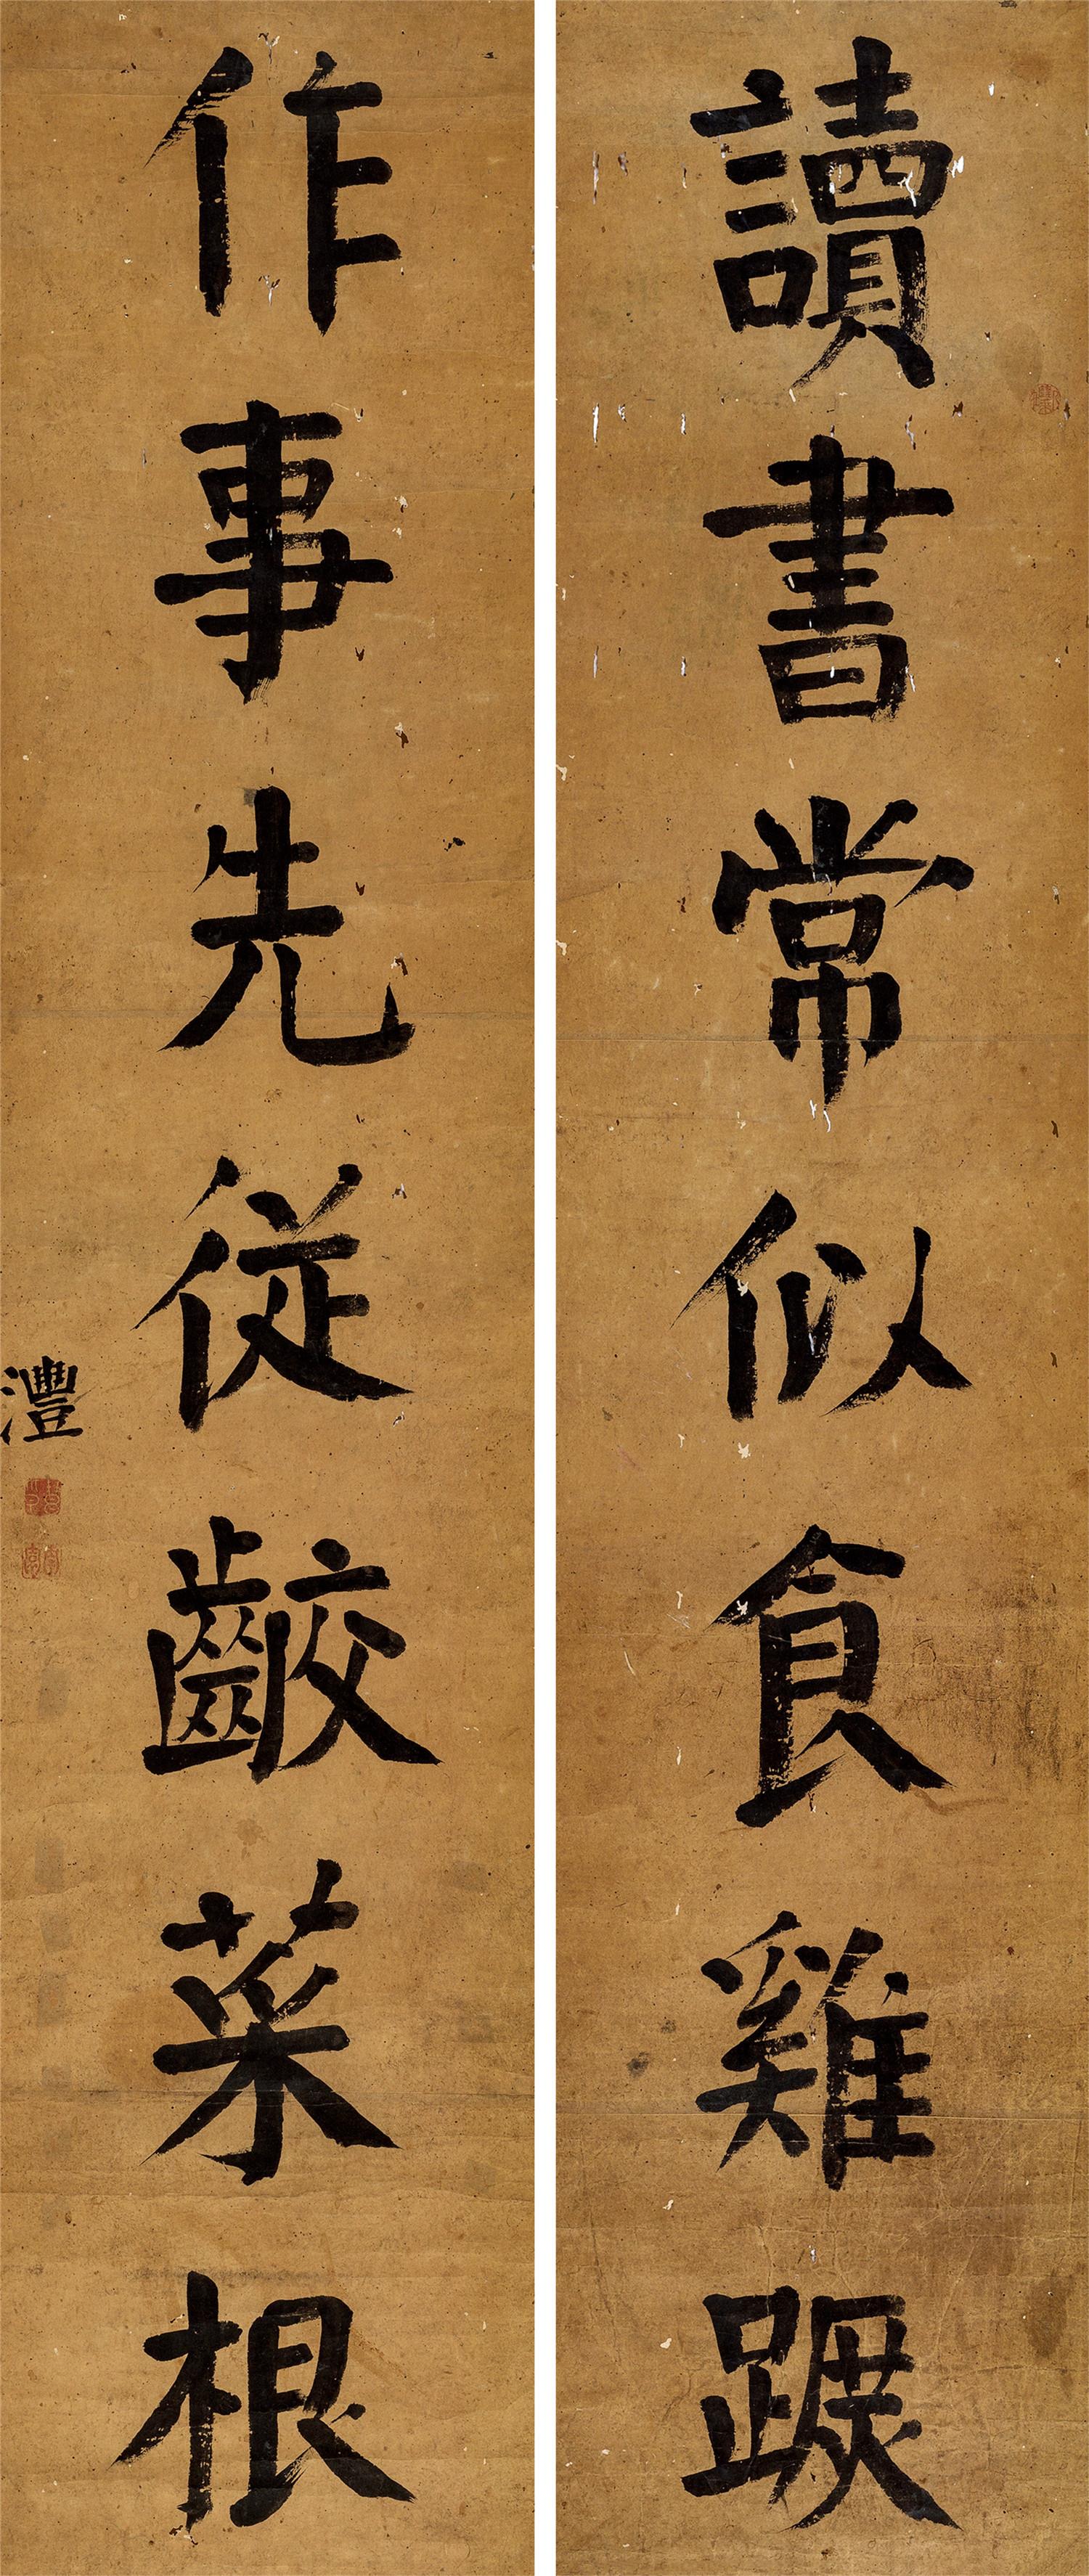 讀書常似食雞蹶
作事先從齩菜根
灃